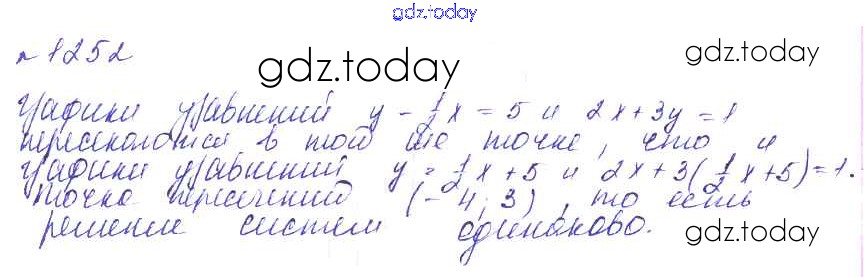 gdz.today
№1252
gdz.today
gdz.today
графики уравнений y - 1/2 x = 5 и 2x + 3y = 1
пересекаются в той же точке, что и
графики уравнений y = 1/2 x + 5 и 2x + 3(1/2 x + 5) = 1.
точка пересечений (-4; 3), то есть
решение систем одинаково.
gdz.today